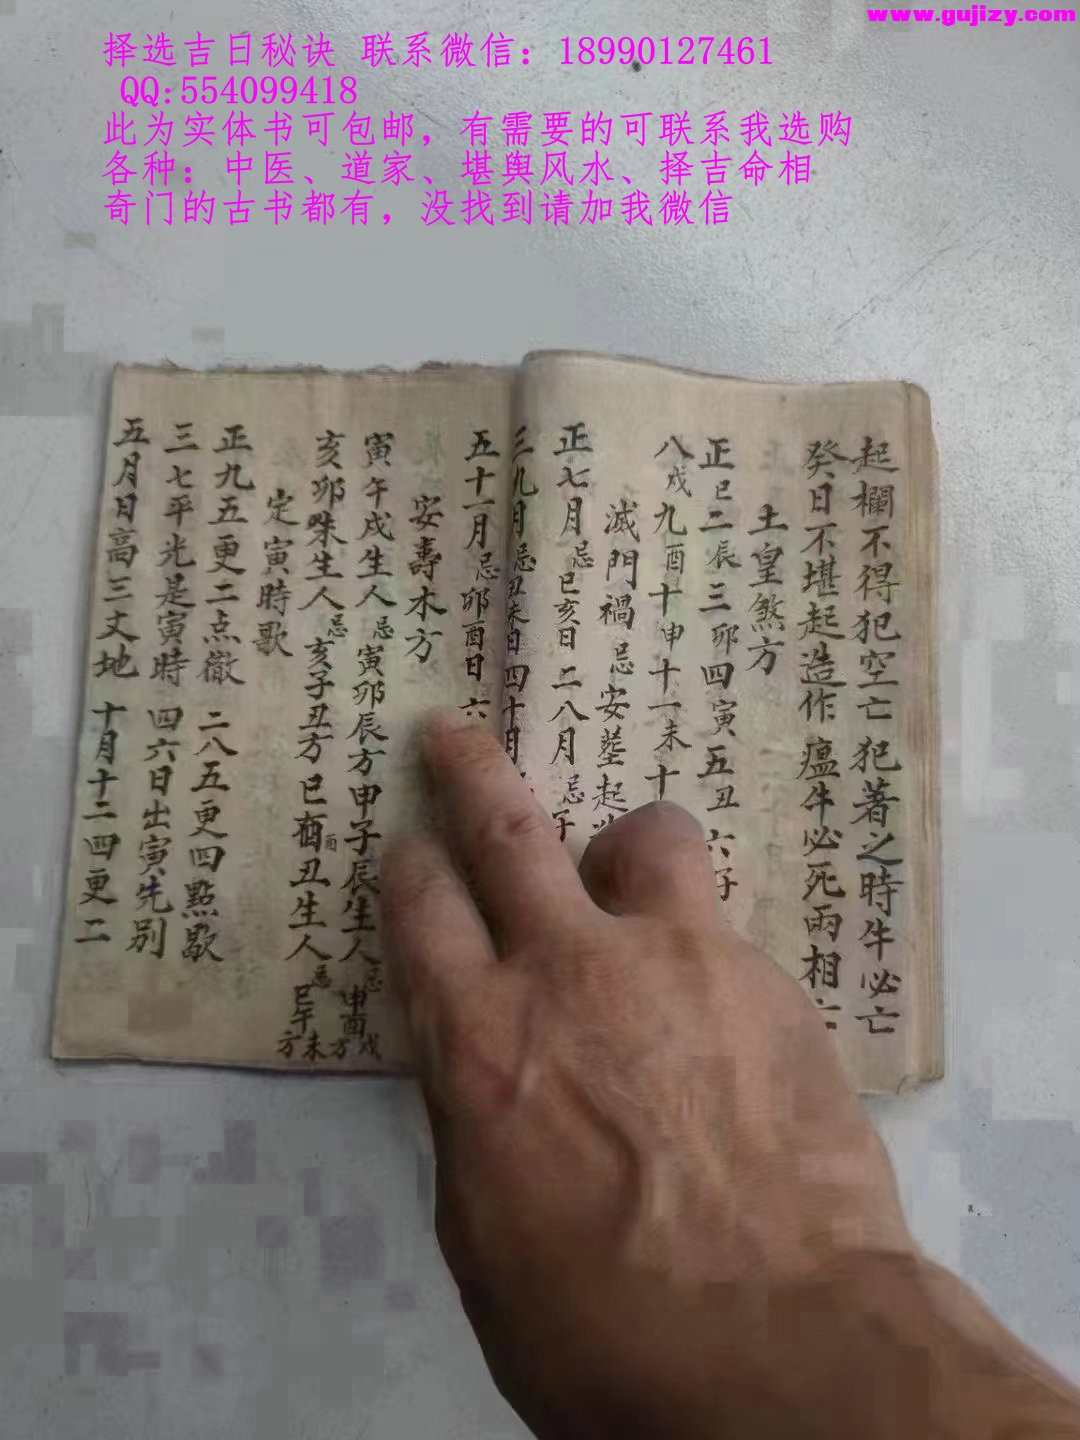 www.gujizy.com
择选吉日秘诀 联系微信：18990127461
QQ:554099418
此为实体书可包邮，有需要的可联系我选购
各种：中医、道家、堪舆风水、择吉命相
奇门的古书都有，没找到请加我微信
起欄不得犯空亡犯著之時牛必亡
癸日不堪起造作瘟牛必死兩相亡
土皇煞方
正巳二辰三卯四寅五丑六子
八戌九酉十申十一未十
滅門禍忌安塟起
正七月忌巳亥日二八月忌子
三九月忌丑未日四十月
五十一月忌卯酉日六
安壽木方
寅午戌生人忌寅卯辰方申子辰生人忌申酉戌方
亥卯未生人忌亥子丑方巳酉丑生人忌巳午未方
定寅時歌
正九五更二点徹 二八五更四點歇
三七平光是寅時 四六日出寅先別
五月日高三丈地 十月十二四更二